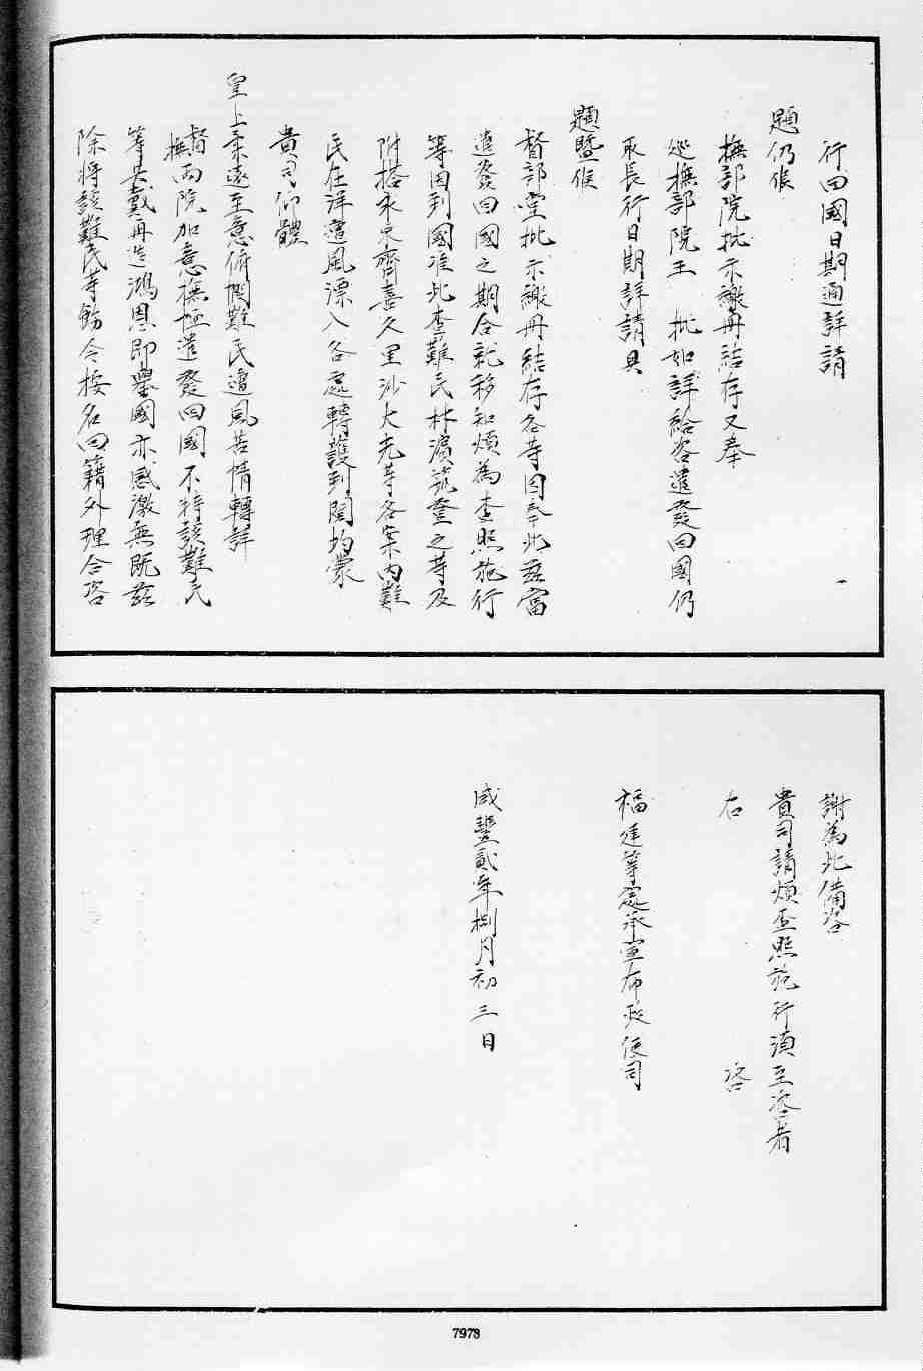 行回國日期通詳請
題仍候
撫部院批示繳冊結存又奉
巡撫部院王　批如詳給咨遣發回國仍
取長行日期詳請具
題暨候
督部堂批示繳冊結存各等因奉此茲當
遣發回國之期合就移知煩為查照施行
等因到國准此查難民林濱筑登之等及
附搭永泉齊喜久里沙大光等各案內難
民在洋遭風漂入各處轉護到閩均蒙
貴司仰體
皇上柔遠至意俯憫難民遭風苦情轉詳
督撫兩院加意撫恤遣發回國不特該難民
等共戴再造鴻恩即舉國亦感激無既茲
除將該難民等飭令按名回籍外理合咨
謝為此備咨
貴司請煩查照施行須至咨者
右　　　咨
福建等處承宣布政使司
咸豐貳年捌月初三日
7973